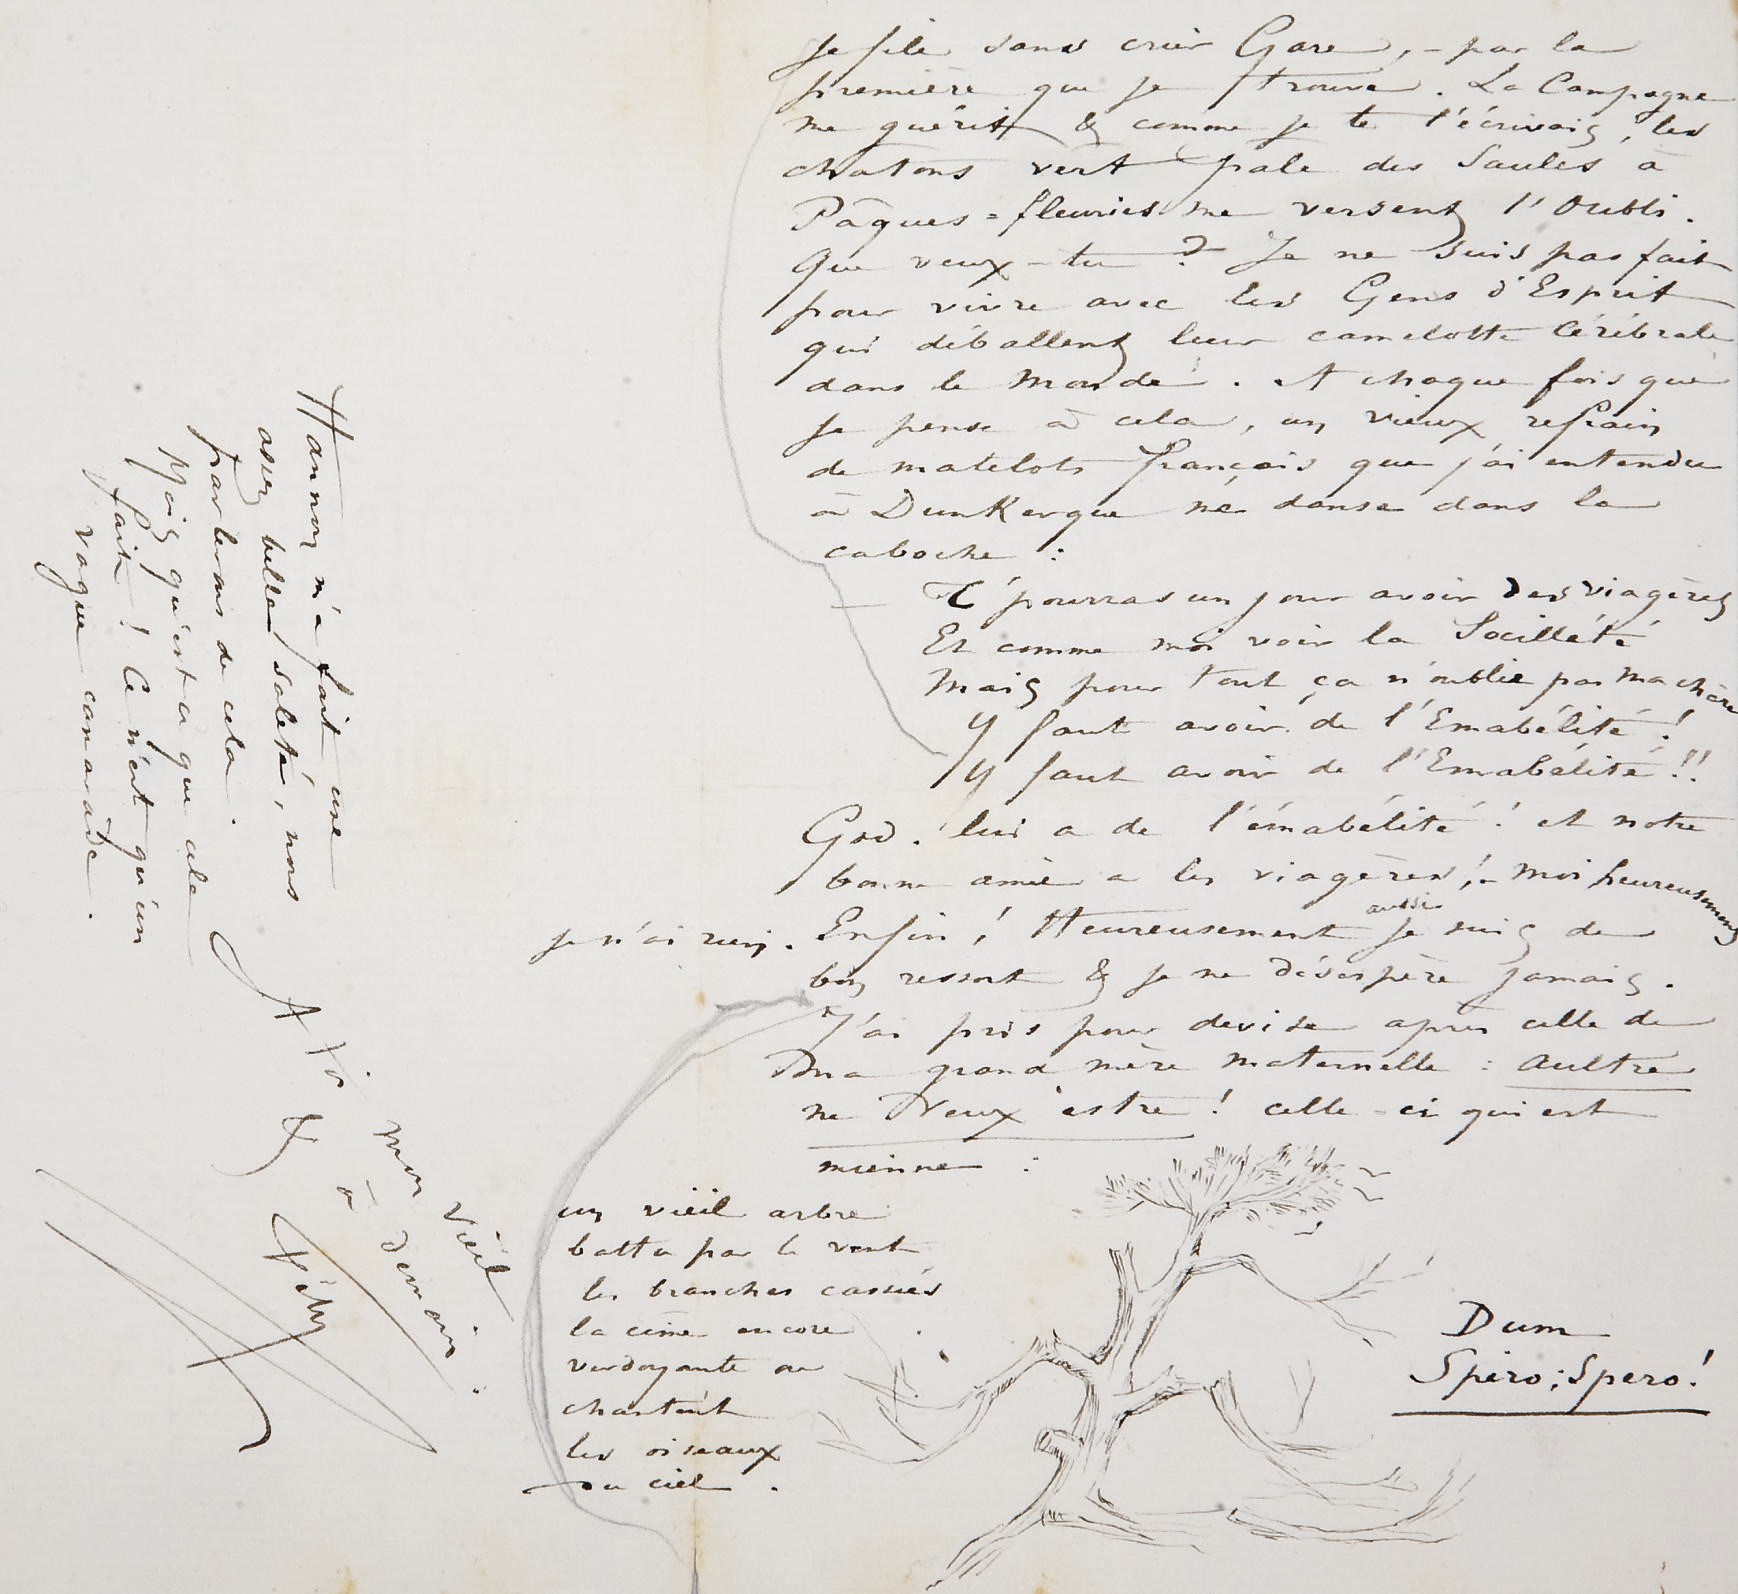 Je file sans crier Gare, - par la
première que je trouve. La Campagne
me guérit & comme je te l'écrivais, les
chatons vert pale des Saules à
Pâques = fleuries me versent l'Oubli.
Que veux-tu ? Je ne suis pas fait
pour vivre avec les Gens d'Esprit
qui déballent leur camelotte Cérébrale
dans le Monde. A chaque fois que
je pense à cela, un vieux refrain
de matelots français que j'ai entendu
à DunKerque me danse dans la
caboche :
T'pourras un jour avoir des viagères
Et comme moi voir la Socillété
Mais pour tout ça n'oublie pas ma chère
Y faut avoir de l'Emabélité !
Y faut avoir de l'Emabélité !!
God. lui a de l'émabélité ! et notre
bonne amie a les viagères ! - moi heureusement
je n'ai rien. Enfin ! Heureusement aussi je suis de
bon ressort & je ne désespère jamais.
J'ai pris pour devise après celle de
Ma grand mère maternelle : Aultre
ne Veux estre ! celle-ci qui est
mienne :
un vieil arbre
battu par le vent
les branches cassées
la cime encore
verdoyante ou
chantent
les oiseaux
du ciel.
Dum
Spiro ; Spero !
Hannon m'a fait une
assez belle saleté, nous
parlerons de cela.
Mais qu'est-ce que cela
fait ! Ce n'est qu'un
vague camarade.
A Toi mon vieil
& à demain.
Fély